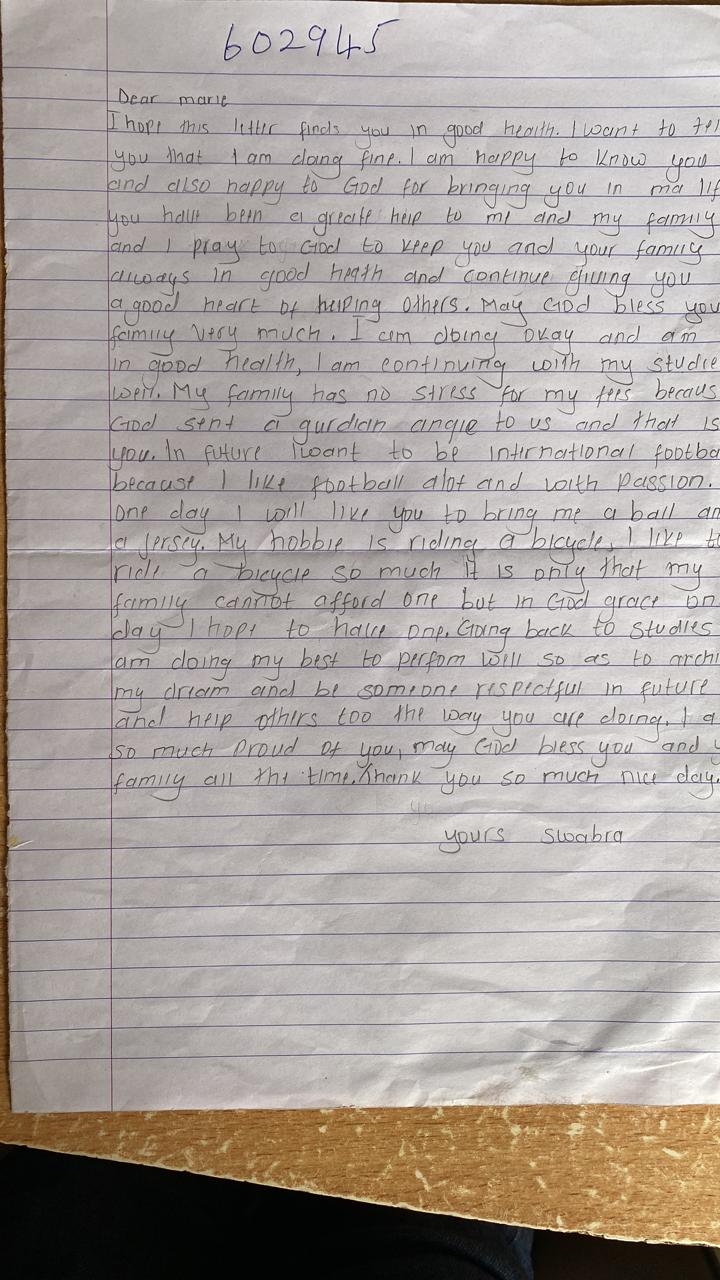 602945
Dear marie
I hope this letter finds you in good health. I want to tel
you that I am doing fine. I am happy to know you
and also happy to God for bringing you in ma lif
you have been a greate help to me and my family
and I pray to God to keep you and your family
always in good heath and continue giving you
a good heart of helping others. May God bless you
family very much. I am doing okay and am
in good health, I am continuing with my studie
well. My family has no stress for my fees becaus
God sent a gurdian angle to us and that is
you. In future I want to be international footba
because I like football alot and with passion.
one day I will like you to bring me a ball an
a jersey. My hobbie is riding a bicycle, I like t
ride a bicycle so much it is only that my
family cannot afford one but in God grace on
day I hope to have one. Going back to studies
am doing my best to perfom well so as to archi
my dream and be someone respectful in future
and help others too the way you are doing. I a
so much proud of you, may God bless you and y
family all the time. Thank you so much nice day.
yours Swabra